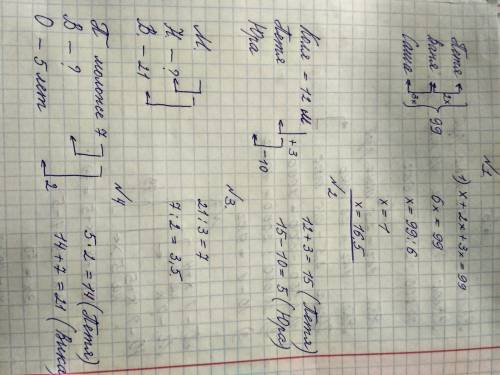 N1
Петя
Коля
Саша
2x
3x
99
1) x + 2x + 3x = 99
6x = 99
x = 99 : 6
x = 1
x = 16.5
N2
Коля = 12 м.
Петя
Юра
+3
-10
12 + 3 = 15 (Петя)
15 - 10 = 5 (Юра)
N3.
М.
Н - ?
В. - 21
21 : 3 = 7
7 : 2 = 3,5
N4
П моложе 7
В - ?
О - 5 лет
2
5 · 2 = 14 (Петя)
14 + 7 = 21 (Вика)